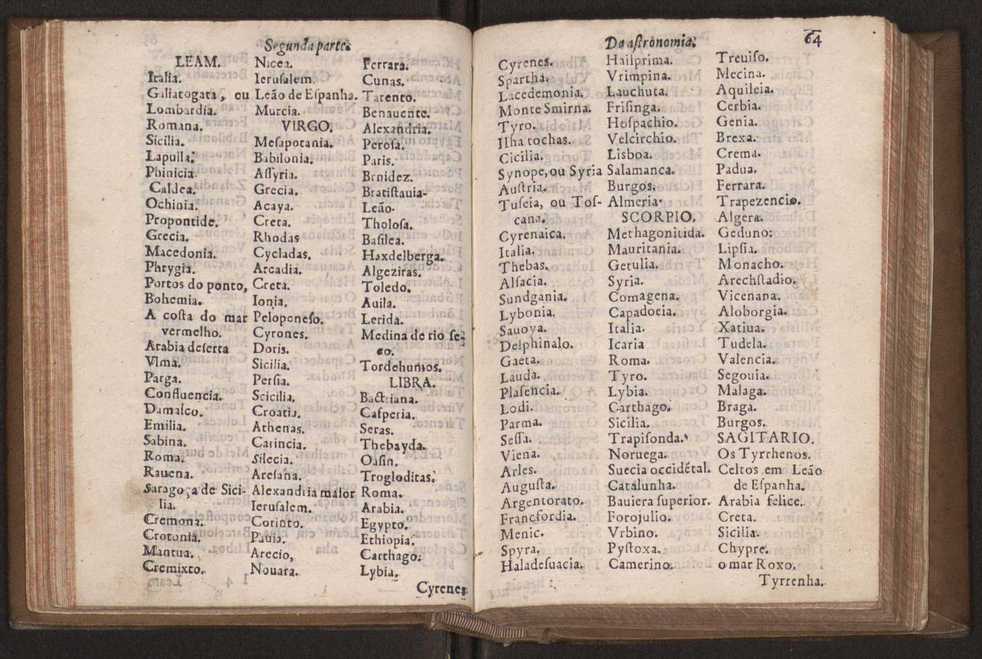 Segunda parte.
LEAM.
Italia.
Galiatogata, ou
Lombardia.
Romana.
Sicilia.
Lapulla.
Phinicia.
Caldea.
Ochinia.
Propontide.
Grecia.
Macedonia.
Phrygia.
Portos do ponto,
Bohemia.
A costa do mar
vermelho.
Arabia deserta
Vlma.
Parga.
Confluencia.
Damasco.
Emilia.
Sabina.
Roma.
Rauena.
Saragoça de Sici-
lia.
Cremona.
Crotonia.
Mantua.
Cremixto.
Nicea.
Ierusalem.
Leão de Espanha.
Murcia.
VIRGO.
Mesapotania.
Babilonia.
Assyria.
Grecia.
Acaya.
Creta.
Rhodas
Cycladas.
Arcadia.
Creta.
Ionia.
Peloponeso.
Cyrones.
Doris.
Sicilia.
Persia.
Scicilia.
Croatia.
Athenas.
Carincia.
Silecia.
Aresana.
Alexandria maior
Ierusalem.
Corinto.
Pauia.
Arecio.
Nouara.
Ferrara.
Cunas.
Tarento.
Benauente.
Alexandria.
Perosa.
Paris.
Brnidez.
Bratistauia.
Leão.
Tholosa.
Basilea.
Haxdelberga.
Algeziras.
Toledo.
Auila.
Lerida.
Medina de rio se-
co.
Tordehumos.
LIBRA.
Bactriana.
Casperia.
Seras.
Thebayda.
Oasin.
Trogloditas.
Roma.
Arabia.
Egypto.
Ethiopia.
Carthago.
Lybia.
Cyrenes
Da astronomia.
64
Cyrenes.
Spartha.
Lacedemonia.
Monte Smirna.
Tyro.
Ilha rochas.
Cicilia.
Synope, ou Syria
Austria.
Tuseia, ou Tos-
cana.
Cyrenaica.
Italia.
Thebas.
Alsacia.
Sundgania.
Lybonia.
Sauoya.
Delphinalo.
Gaeta.
Lauda.
Plasencia.
Lodi.
Parma.
Sessa.
Viena.
Arles.
Augusta.
Argentorato.
Francfordia.
Menic.
Spyra.
Haladesuacia.
Hailprima.
Vrimpina.
Lauchuta.
Frisinga.
Hospachio.
Velcirchio.
Lisboa.
Salamanca.
Burgos.
Almeria.
SCORPIO.
Methagonitida.
Mauritania.
Gerulia.
Syria.
Comagena.
Capadocia.
Italia.
Icaria
Roma.
Tyro.
Lybia.
Carthago.
Sicilia.
Trapisonda.
Noruega.
Suecia occidẽtal.
Catalunha.
Bauiera superior.
Forojulio.
Vrbino.
Pystoxa.
Camerino.
Treuiso.
Mecina.
Aquileia.
Cerbia.
Genia.
Brexa.
Crema.
Padua.
Ferrara.
Trapezencio.
Algera.
Geduno.
Lipsia.
Monacho.
Arechstadio.
Vicenana.
Aloborgia.
Xatiua.
Tudela.
Valencia.
Segouia.
Malaga.
Braga.
Burgos.
SAGITARIO.
Os Tyrrhenos.
Celtos em Leão
de Espanha.
Arabia felice.
Creta.
Sicilia.
Chypre.
o mar Roxo.
Tyrrenha.